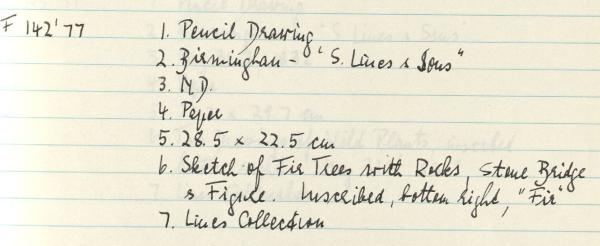 F 142'77 1. Pencil Drawing
2. Birmingham - "S. Lines & Sons"
3. N.D.
4. Paper
5. 28.5 x 22.5 cm
6. Sketch of Fir Trees with Rocks, Stone Bridge
& Figure. Inscribed, bottom right, "Fir"
7. Lines Collection